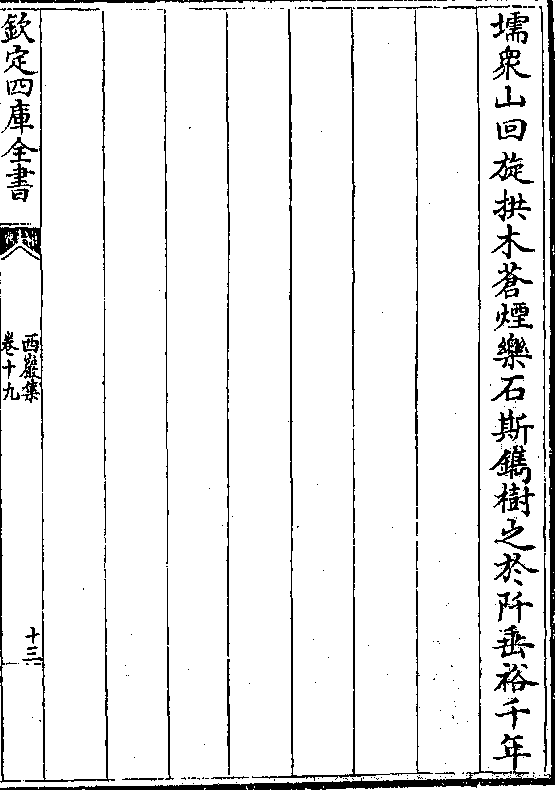 壖衆山回旋拱木蒼煙樂石斯鐫樹之於阡垂裕千年
欽定四庫全書
西巖集
卷十九
十三